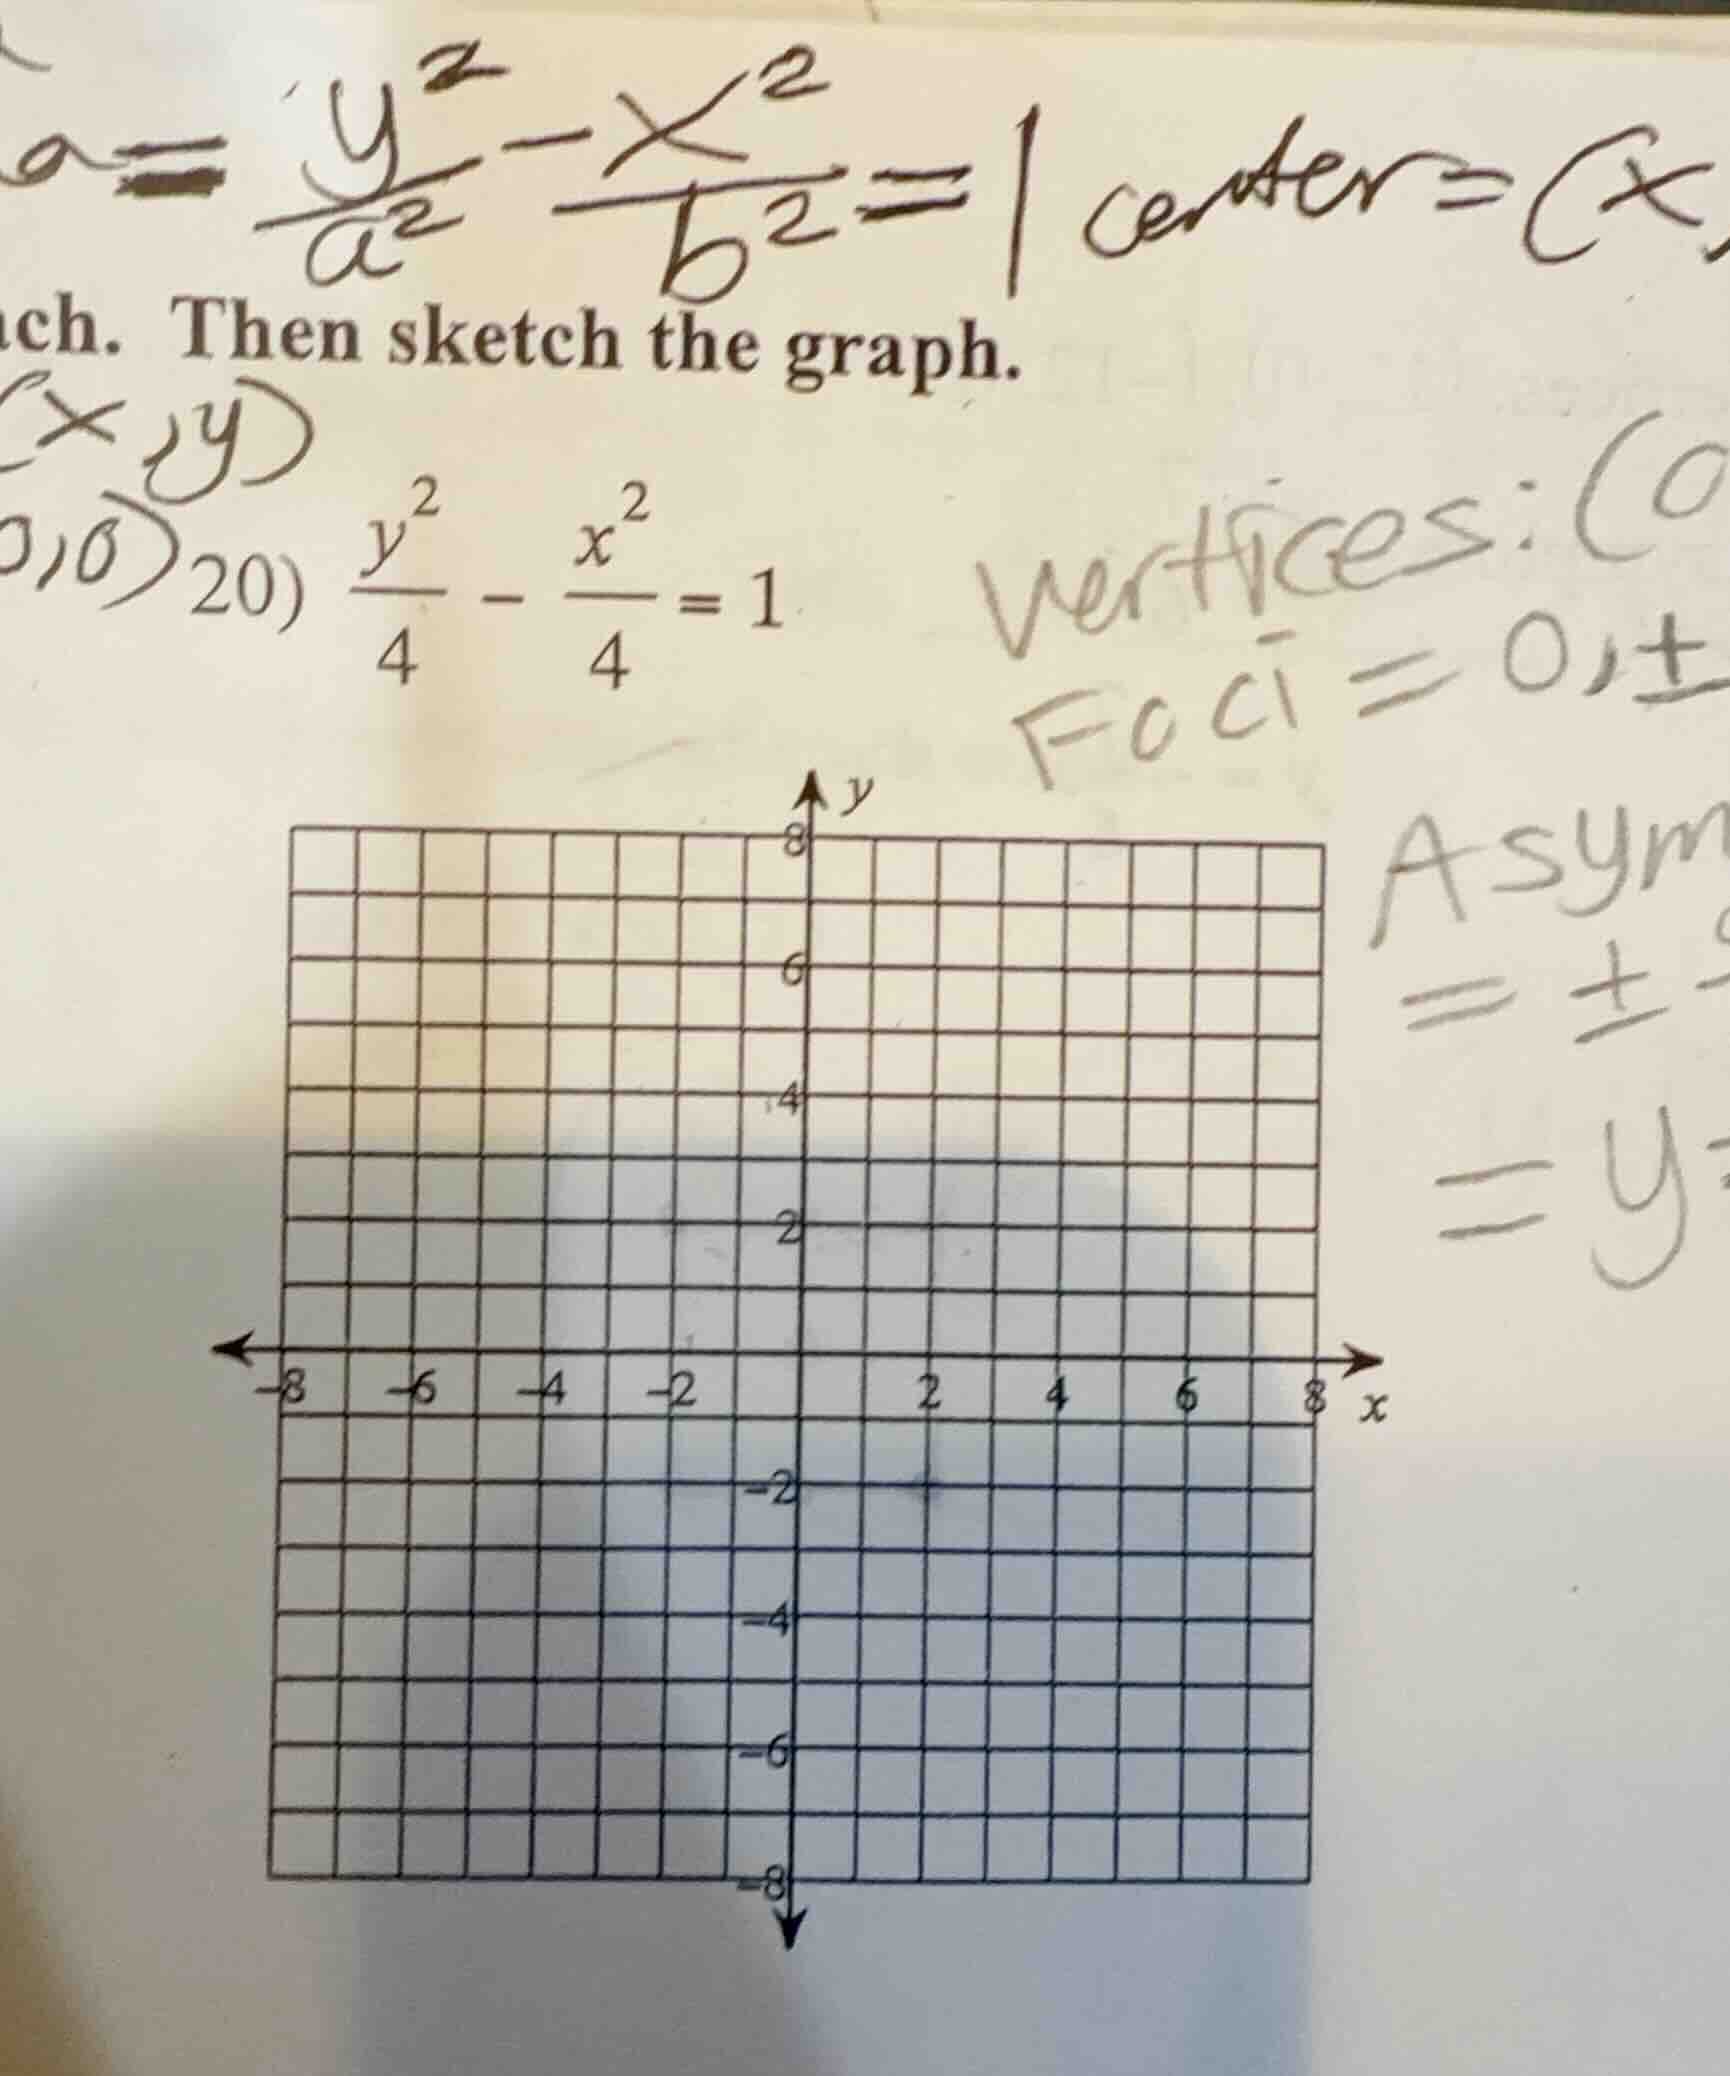 a = y²/a² − x²/b² = 1 center = (x,
ch. Then sketch the graph.
(x,y)
0,0)
20) y²/4 − x²/4 = 1
vertices: (0
Foci = 0,±
Asym
= ±
= y=
y
8
6
4
2
-8 -6 -4 -2 2 4 6 8 x
-2
-4
-6
-8